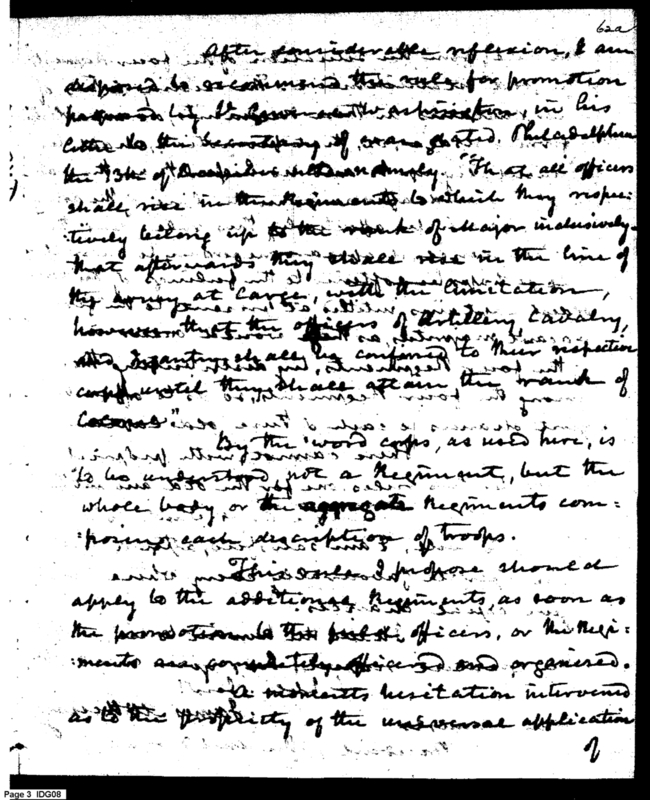 62a
After considerable reflexion, I am
disposed to recommend the rule for promotion
proposed by in his
letter to the Secretary of war dated Philadelphia
the 13th of "That all officers
shall rise in the Regiments to which they respec-
tively belong up to the rank of Major inclusively-
that afterwards they shall rise in the line of
the army at large, with the limitation,
however that the officers of Artillery, Cavalry,
and Infantry shall be confined to their respective
corps, until they shall attain the rank of
Colonel."
By the word corps, as used here, is
to be understood not a Regiment, but the
whole body, or the aggregate Regiments com=
:posing each description of troops.
This rule I propose should
apply to the additional Regiments, as soon as
the officers, or the Regi=
:ments are completely officered and organised.
A moments hesitation intervened
as to the propriety of the universal application
of
Page 3 IDG08